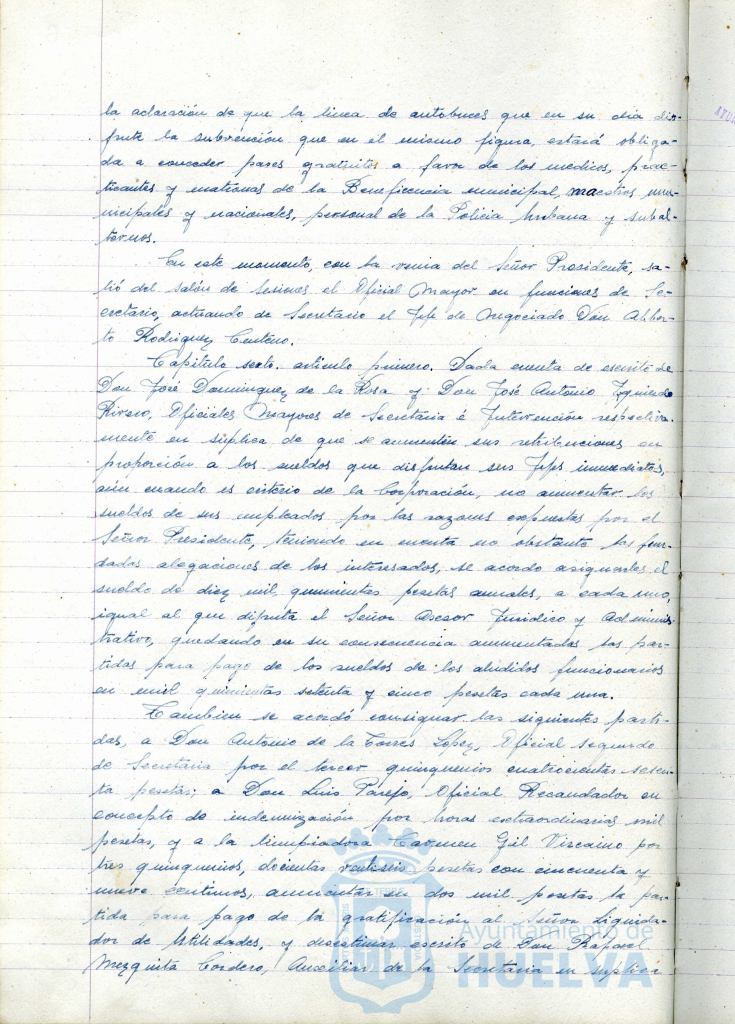 la aclaración de que la linea de autobuces que en su dia dis-
frute la subvención que en el mismo figura, estará obliga-
da a conceder pases gratuitos a favor de los medicos, prac-
ticantes y matronas de la Beneficencia municipal, maestros mu-
nicipales y nacionales, personal de la Policia Urbana y subal-
ternos.
En este momento, con la venia del Señor Presidente, sa-
lió del salón de Sesiones el Oficial Mayor en funciones de Se-
cretario, actuando de Secretario el Jefe de Negociado Don Alber-
to Rodriguez Centeno.
Capitulo sexto. articulo primero. Dada cuenta de escrito de
Don José Dominguez de la Rosa y Don José Antonio Izquierdo
Rivero, Oficiales Mayores de Secretaria é Intervención respectiva-
mente en súplica de que se aumenten sus retribuciones en
proporción a los sueldos que disfrutan sus Jefes inmediatos,
aún cuando es criterio de la Corporación, no aumentar los
sueldos de sus empleados por las razones expuestas por el
Señor Presidente, teniendo en cuenta no obstante las fun-
dadas alegaciones de los interesados, se acordo asignarles el
sueldo de diez mil quinientas pesetas anuales, a cada uno,
igual al que disfruta el Señor Asesor Juridico y Adminis-
trativo, quedando en su consecuencia aumentadas las par-
tidas para pago de los sueldos de los aludidos funcionarios
en mil quinientas setenta y cinco pesetas cada una.
Tambien se acordó consignar las siguientes parti-
das, a Don Antonio de la Torres Lopez, Oficial segundo
de Secretaria por el tercer quinquenio cuatrocientas sesen-
ta pesetas; a Don Luis Parejo, Oficial Recaudador en
concepto de indemnización por horas extraordinarias mil
pesetas, y a la limpiadora Carmen Gil Vizcaino por
tres quinquenios, docientas veintiseis pesetas con cincuenta y
nueve centimos, aumentar en dos mil pesetas la par-
tida para pago de la gratificación al Señor Liquida-
dor de Utilidades, y desestimar escrito de Don Rafael
Mezquita Cordero, Auxiliar de la Secretaria en suplica
Ayuntamiento de
HUELVA